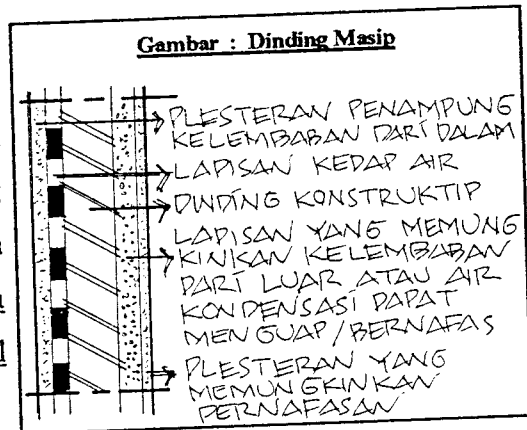 Gambar : Dinding Masip
PLESTERAN PENAMPUNG
KELEMBABAN DARI DALAM
LAPISAN KEDAP AIR
DINDING KONSTRUKTIP
LAPISAN YANG MEMUNG
KINKAN KELEMBABAN
DARI LUAR ATAU AIR
KONDENSASI DAPAT
MENGUAP/BERNAFAS
PLESTERAN YANG
MEMUNGKINKAN
PERNAFASAN